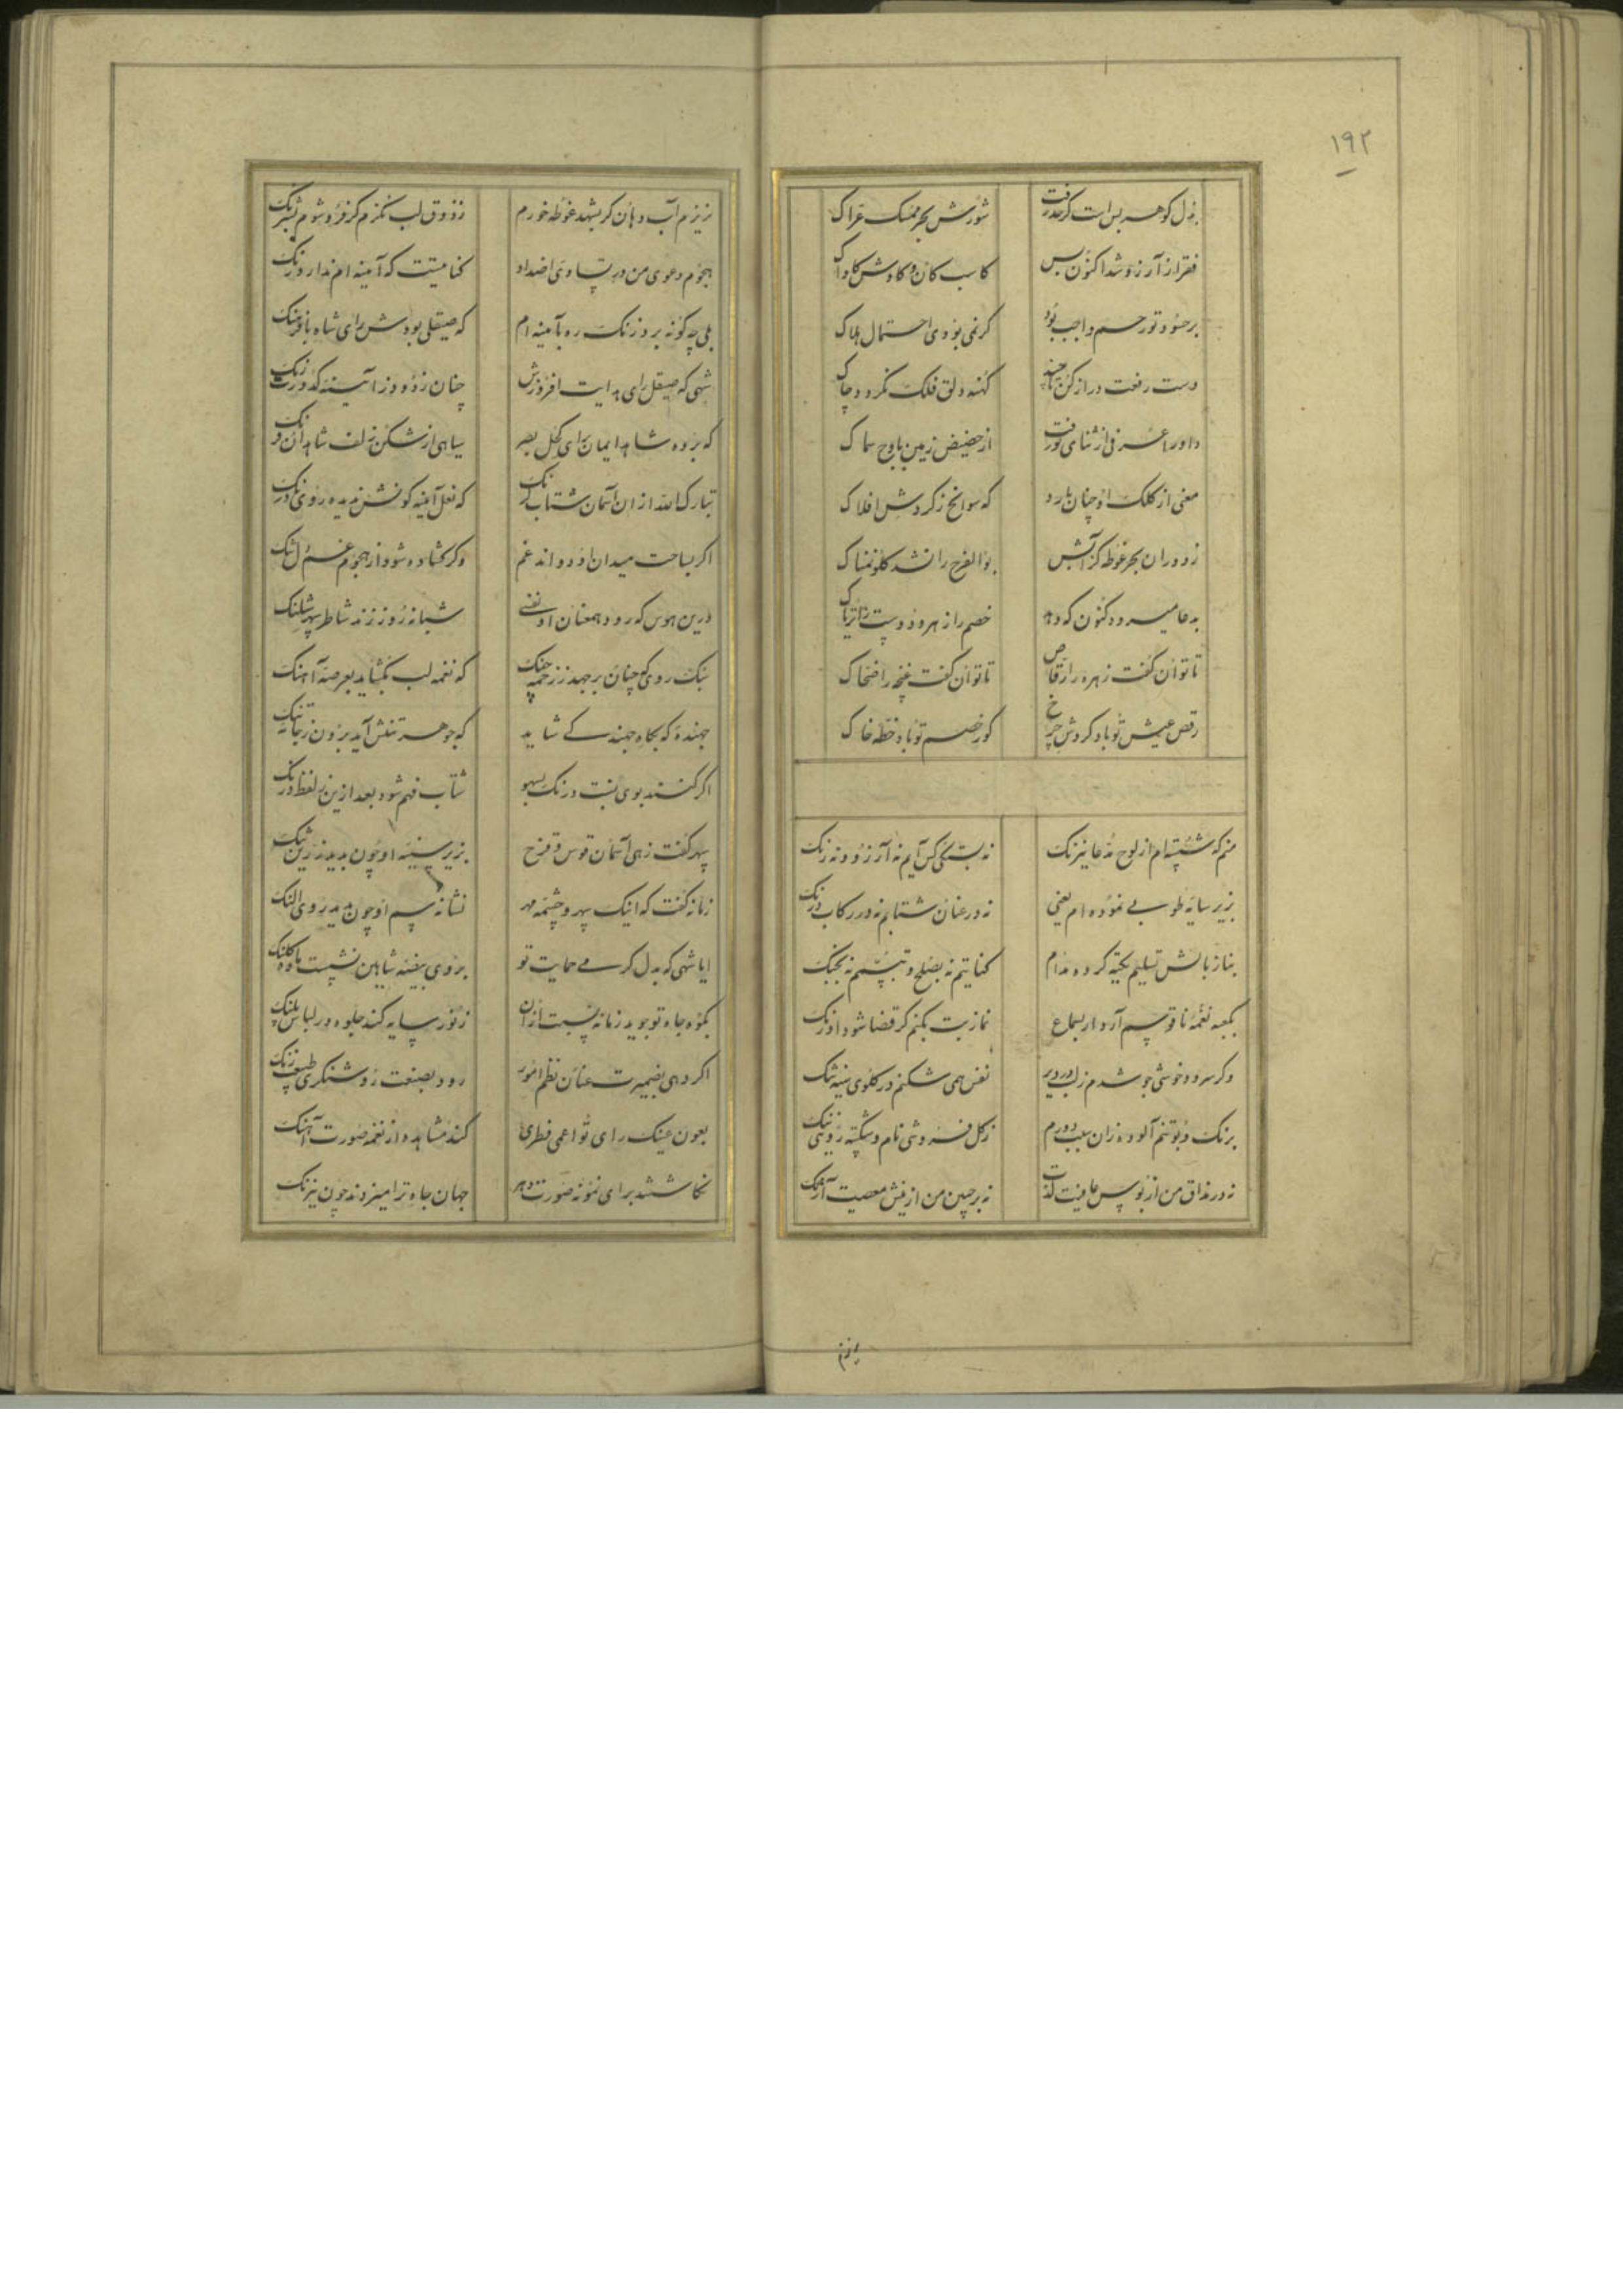 ۱۹۲
بذل گوهر بس است کز مدد رفت شورش بحر ممسک غراک
فقر از آرزو شد اکنون بس کاسب کان و کاوش کاواک
بر حسود تو رحم واجب بود گر نمی بودی احتمال هلاک
دست رفعت دراز کن تا چند کهنه دلق فلک نگردد چاک
داورا عرفی از ثنای تو رفت از حضیض زمین باوج سماک
معنی از کلک او چنان بارد که سوانح ز گردش افلاک
زد دران بحر غوطه کز آبش بوالفرح را نشد گلو نمناک
به دعا میرود کنون که دهد خصم را زهر و دوست را تریاک
تا توان گفت زهره را رقاص تا توان گفت غنچه را ضحاک
رقص عیش تو باد گردش چرخ گور خصم تو باد خطه خاک
منم که شسته ام از لوح مدعا نیرنگ نه بستگی کس آیم نه آرزو و نه رنگ
بزیر سایه طوبی غنوده ام یعنی نه در عنان شتابم نه در رکاب درنگ
بناز بالش تسلیم تکیه کرده مدام کنایتم نه بصلح و تبسم نه بجنگ
بکعبه نغمه ناقوسم آرد ار بسماع نماز بت بکنم گر قضا شود آونگ
وگر سرود خوشی جوشدم ز لب در دیر نفس همی شکنم در گلوی سینه تنگ
برنگ و بو تنم آلوده زان سبب دورم ز گل فروشی نام و شکسته روئی ننگ
نه در مذاق من از بوس عافیت لذت نه بر جبین من از نیش معصیت آژنگ
بریزم
بریزم آب دهان گر بشهد غوطه خورم ز ذوق لب نگزم گر فرو شوم بشرنگ
هجوم دعوی من در تساوی اضداد کنایتست که آئینه ام ندارد زنگ
بلی چگونه برد زنگ ره بآئینه ام که صیقلی بودش رای شاه با فرهنگ
شهی که صیقل رای هدایت افروزش چنان زدود ز آئینه کدورت زنگ
که برده شاهد ایمان برای کحل بصر سیاهی از شکن زلف شاهدان فرنگ
تبارک الله از ان آسمان شتاب کرنگ که نعل آینه گونش ندیده روی درنگ
اگر بساحت میدان او دواند غم وگر گشاده شود از هجوم غم دل تنگ
درین هوس که رود همعنان او نفسی شبانه روز زند شاطر سپهر شلنگ
سبک روی که چنان برجهد ز زخمه چنگ که نغمه لب بگشاید بعرصه آهنگ
جهنده که بگاه جهندگی شاید که جوهر تنش آید برون ز تنگ
اگر کنند بوی نسبت درنگ بسهو شتاب فهم شود بعد ازین ز لفظ درنگ
سپهر گفت زهی آسمان قوس قزح بزیر سینه او چون بدید زرین تنگ
زمانه گفت که اینک سپهر و چشمه مهر نشانه سم او چون بدید روی النگ
ایا شهی که بدل گرمی حمایت تو بروی بیضه شاهین نشست ماده کلنگ
بکوه جاه تو جوید زمانه نسبت ازان ز نور سایه کند جلوه در لباس پلنگ
اگر دهی بضمیرت عنان نظم امور رود بصنعت روشنگری طبیعت زنگ
بعون عینک رای تو اعمی فطری کند مشاهده از نغمه صورت آهنگ
نگاشتند برای نمونه صورت دهر جهان جاه ترا میزدند چون نیرنگ